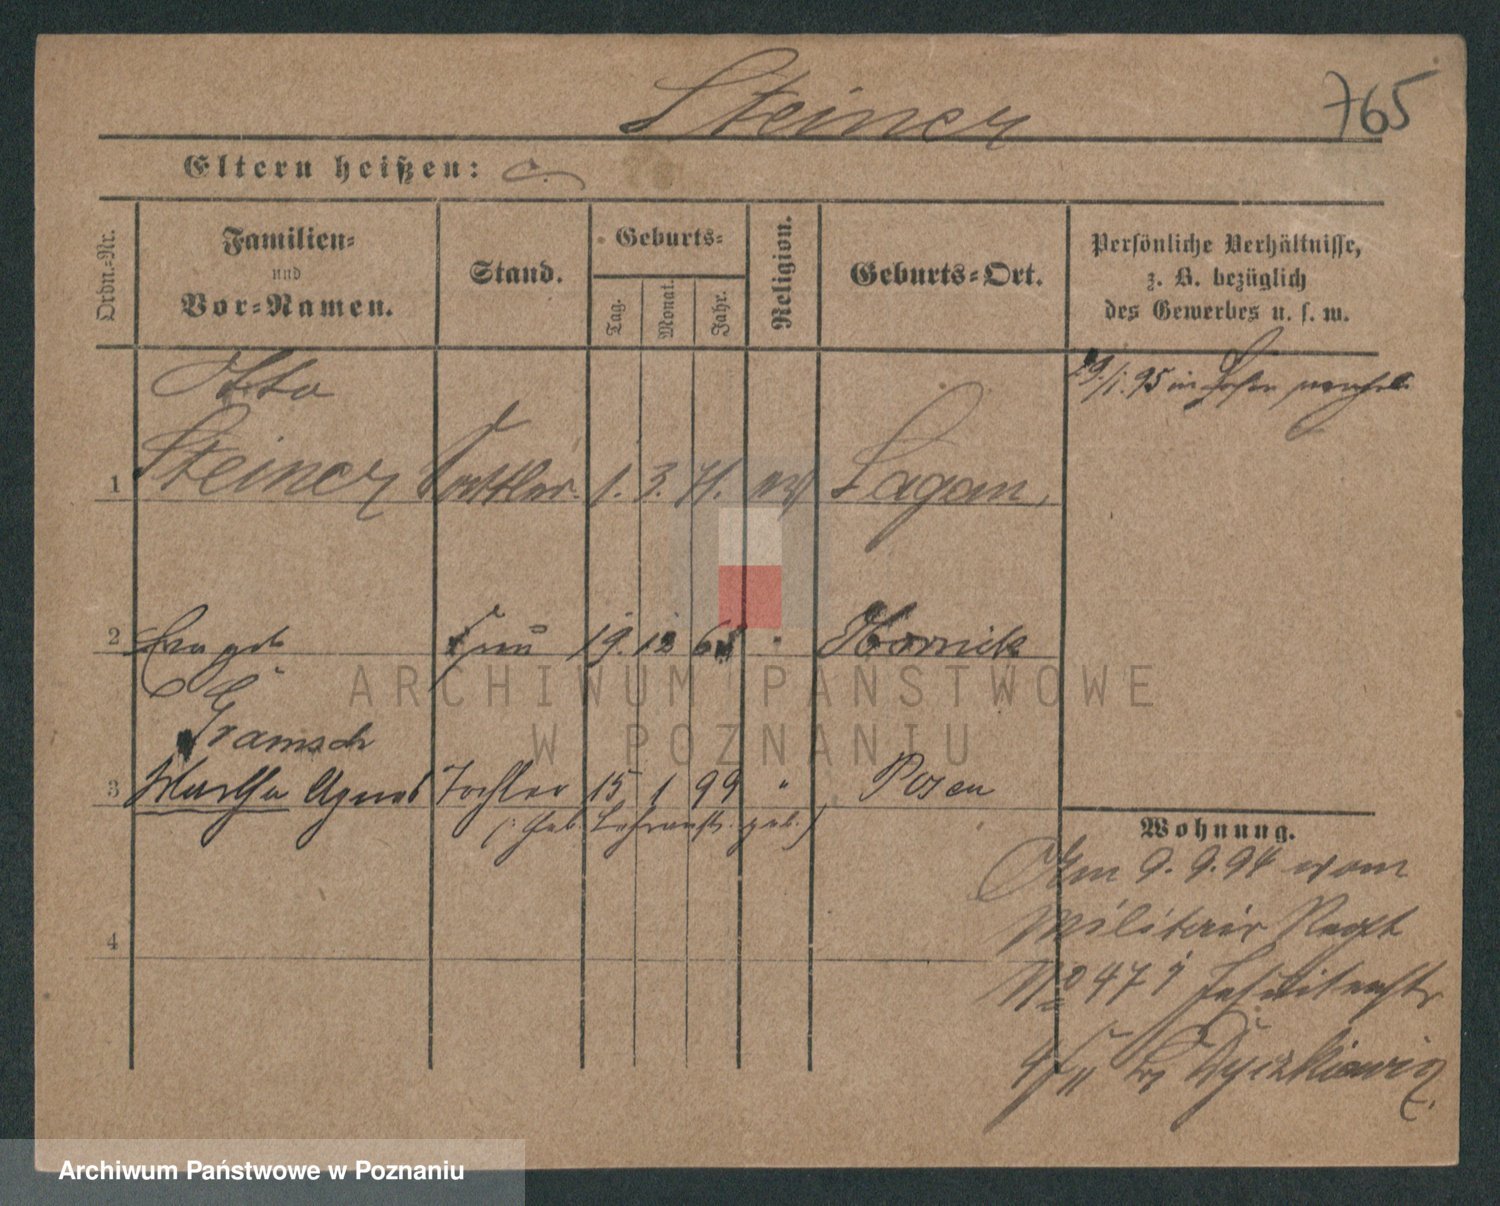 Steiner
765
Eltern heißen:
Ordn.-Nr.
Familien-
und
Vor-Namen.
Stand.
Geburts-
Tag.
Monat.
Jahr.
Religion.
Geburts-Ort.
Persönliche Verhältnisse,
z. B. bezüglich
des Gewerbes u. s. w.
29/1. 95 in
Otto
1 Steiner Sattler 1. 3. 71. ev Sagan
2 Frau 19. 12 " Horrick
Gramsch
3 Martha Agnes Tochter 15 1 99 " Posen
geb.)
Wohnung.
Am 9. 9. 94 vom
Militair Regt
No 47 Jesuitenstr
4/II b Dyczkiewicz.
4
ARCHIWUM PAŃSTWOWE
W POZNANIU
Archiwum Państwowe w Poznaniu